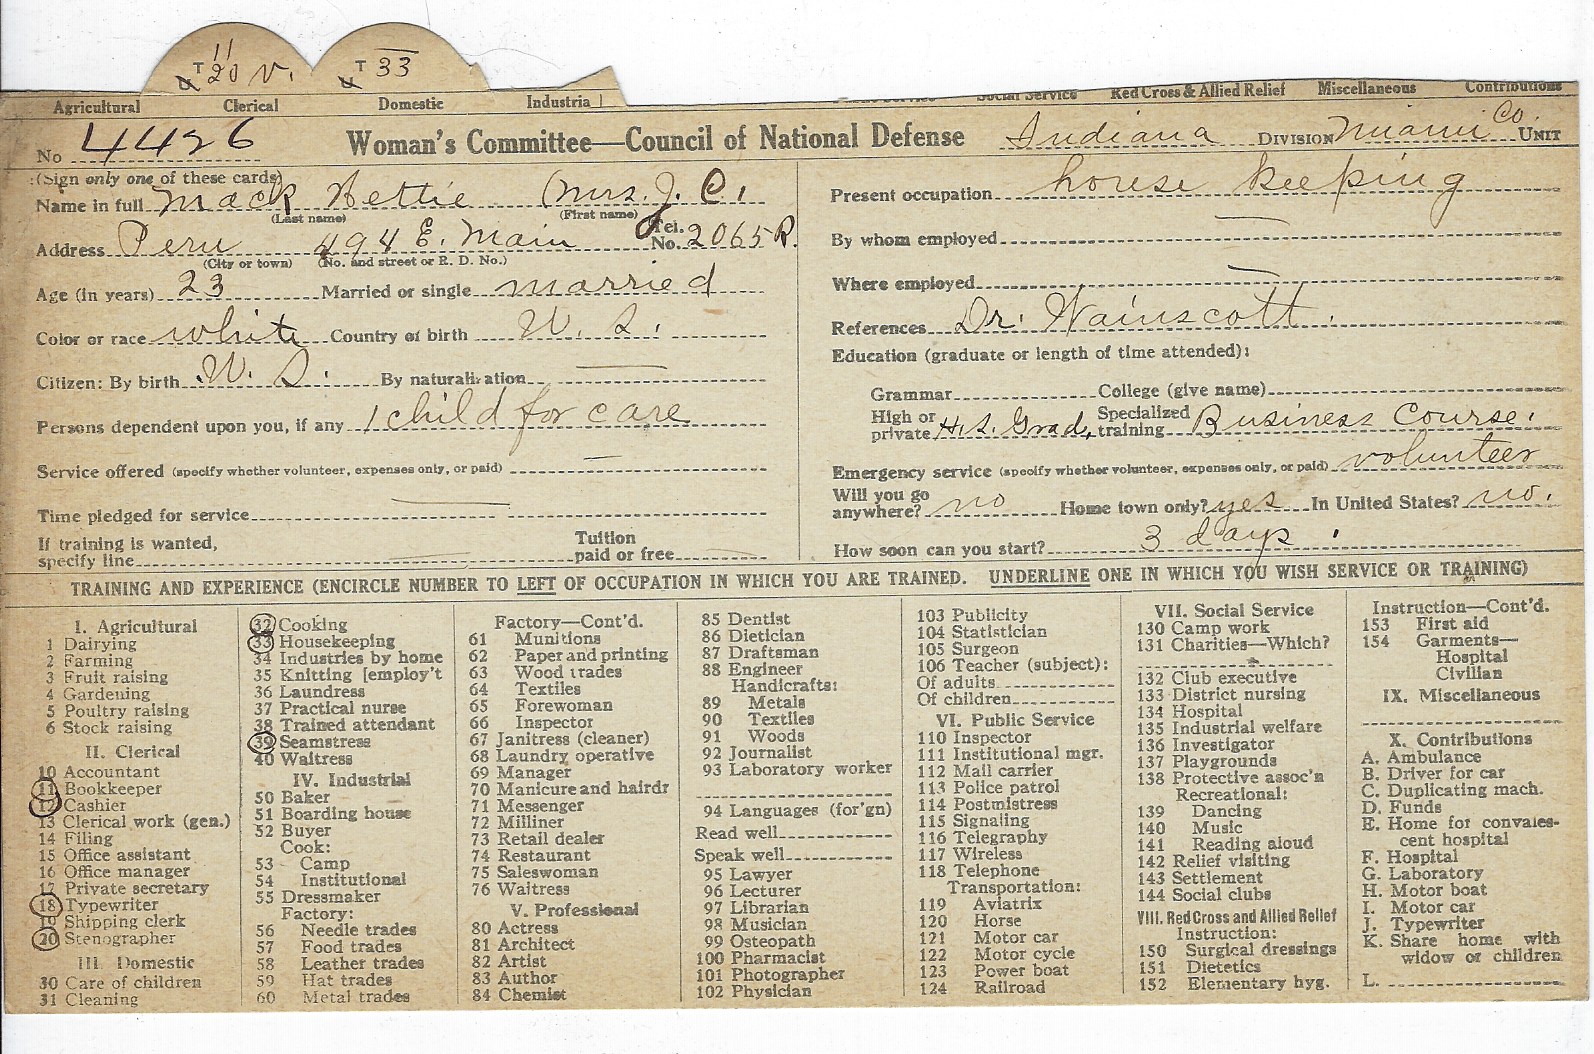 11
T 20 V. T 33
Agricultural Clerical Domestic Industria Social Service Red Cross & Allied Relief Miscellaneous Contributions
No 4426 Woman's Committee—Council of National Defense Indiana DIVISION Miami Co. UNIT
(Sign only one of these cards)
Name in full Mack Hettie (Mrs. J. C.
(Last name) (First name)
Address Peru 494 E. Main Tel. No. 2065 R.
(City or town) (No. and street or R. D. No.)
Age (in years) 23 Married or single married
Color or race white Country of birth U. S.
Citizen: By birth U. S. By naturalization
Persons dependent upon you, if any 1 child for care
Service offered (specify whether volunteer, expenses only, or paid)
Time pledged for service
If training is wanted, specify line Tuition paid or free
Present occupation house keeping
By whom employed
Where employed
References Dr. Wainscott.
Education (graduate or length of time attended):
Grammar College (give name)
High or private H.S. Grad, Specialized training Business Course.
Emergency service (specify whether volunteer, expenses only, or paid) volunteer
Will you go anywhere? no Home town only? yes In United States? no.
How soon can you start? 3 days.
TRAINING AND EXPERIENCE (ENCIRCLE NUMBER TO LEFT OF OCCUPATION IN WHICH YOU ARE TRAINED. UNDERLINE ONE IN WHICH YOU WISH SERVICE OR TRAINING)
I. Agricultural
1 Dairying
2 Farming
3 Fruit raising
4 Gardening
5 Poultry raising
6 Stock raising
II. Clerical
10 Accountant
11 Bookkeeper
12 Cashier
13 Clerical work (gen.)
14 Filing
15 Office assistant
16 Office manager
17 Private secretary
18 Typewriter
19 Shipping clerk
20 Stenographer
III. Domestic
30 Care of children
31 Cleaning
32 Cooking
33 Housekeeping
34 Industries by home
35 Knitting [employ't
36 Laundress
37 Practical nurse
38 Trained attendant
39 Seamstress
40 Waitress
IV. Industrial
50 Baker
51 Boarding house
52 Buyer
Cook:
53 Camp
54 Institutional
55 Dressmaker
Factory:
56 Needle trades
57 Food trades
58 Leather trades
59 Hat trades
60 Metal trades
Factory—Cont'd.
61 Munitions
62 Paper and printing
63 Wood trades
64 Textiles
65 Forewoman
66 Inspector
67 Janitress (cleaner)
68 Laundry operative
69 Manager
70 Manicure and hairdr
71 Messenger
72 Milliner
73 Retail dealer
74 Restaurant
75 Saleswoman
76 Waitress
V. Professional
80 Actress
81 Architect
82 Artist
83 Author
84 Chemist
85 Dentist
86 Dietician
87 Draftsman
88 Engineer
Handicrafts:
89 Metals
90 Textiles
91 Woods
92 Journalist
93 Laboratory worker
94 Languages (for'gn)
Read well
Speak well
95 Lawyer
96 Lecturer
97 Librarian
98 Musician
99 Osteopath
100 Pharmacist
101 Photographer
102 Physician
103 Publicity
104 Statistician
105 Surgeon
106 Teacher (subject):
Of adults
Of children
VI. Public Service
110 Inspector
111 Institutional mgr.
112 Mail carrier
113 Police patrol
114 Postmistress
115 Signaling
116 Telegraphy
117 Wireless
118 Telephone
Transportation:
119 Aviatrix
120 Horse
121 Motor car
122 Motor cycle
123 Power boat
124 Railroad
VII. Social Service
130 Camp work
131 Charities—Which?
132 Club executive
133 District nursing
134 Hospital
135 Industrial welfare
136 Investigator
137 Playgrounds
138 Protective assoc'n
Recreational:
139 Dancing
140 Music
141 Reading aloud
142 Relief visiting
143 Settlement
144 Social clubs
VIII. Red Cross and Allied Relief
Instruction:
150 Surgical dressings
151 Dietetics
152 Elementary hyg.
Instruction—Cont'd.
153 First aid
154 Garments—
Hospital
Civilian
IX. Miscellaneous
X. Contributions
A. Ambulance
B. Driver for car
C. Duplicating mach.
D. Funds
E. Home for convales-
cent hospital
F. Hospital
G. Laboratory
H. Motor boat
I. Motor car
J. Typewriter
K. Share home with
widow or children
L.